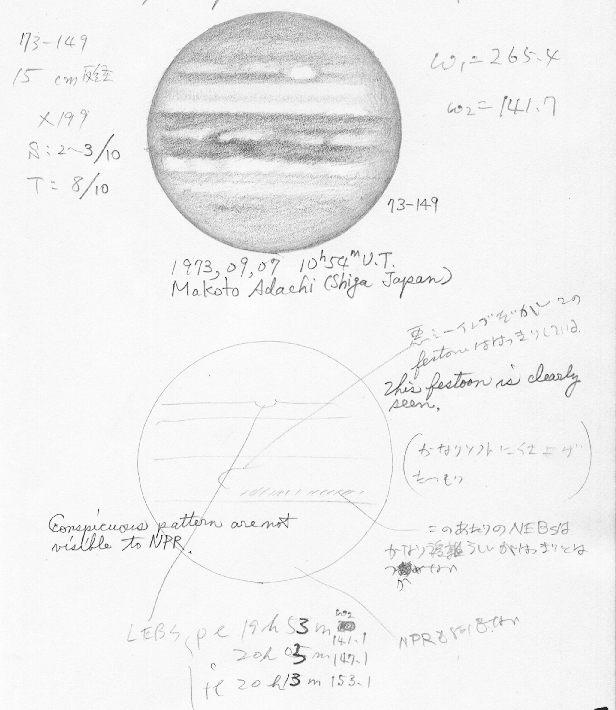 73-149
15 cm 反経
×199
S: 2~3/10
T = 8/10
ω1 = 265.4
ω2 = 141.7
73-149
1973, 09, 07 10h54m U.T.
Makoto Adachi (Shiga Japan)
festoonははっきりしている
This festoon is clearly
seen.
(かなりソフトに仕上げ
たつもり)
Conspicuous pattern are not
visible to NPR.
このあたりのNEBsは
かなり複雑らしいがはっきりとは
LEBs
ω2
pe 19h 53m 141.1
20h 05m 147.1
20h 13m 153.1
NPRも